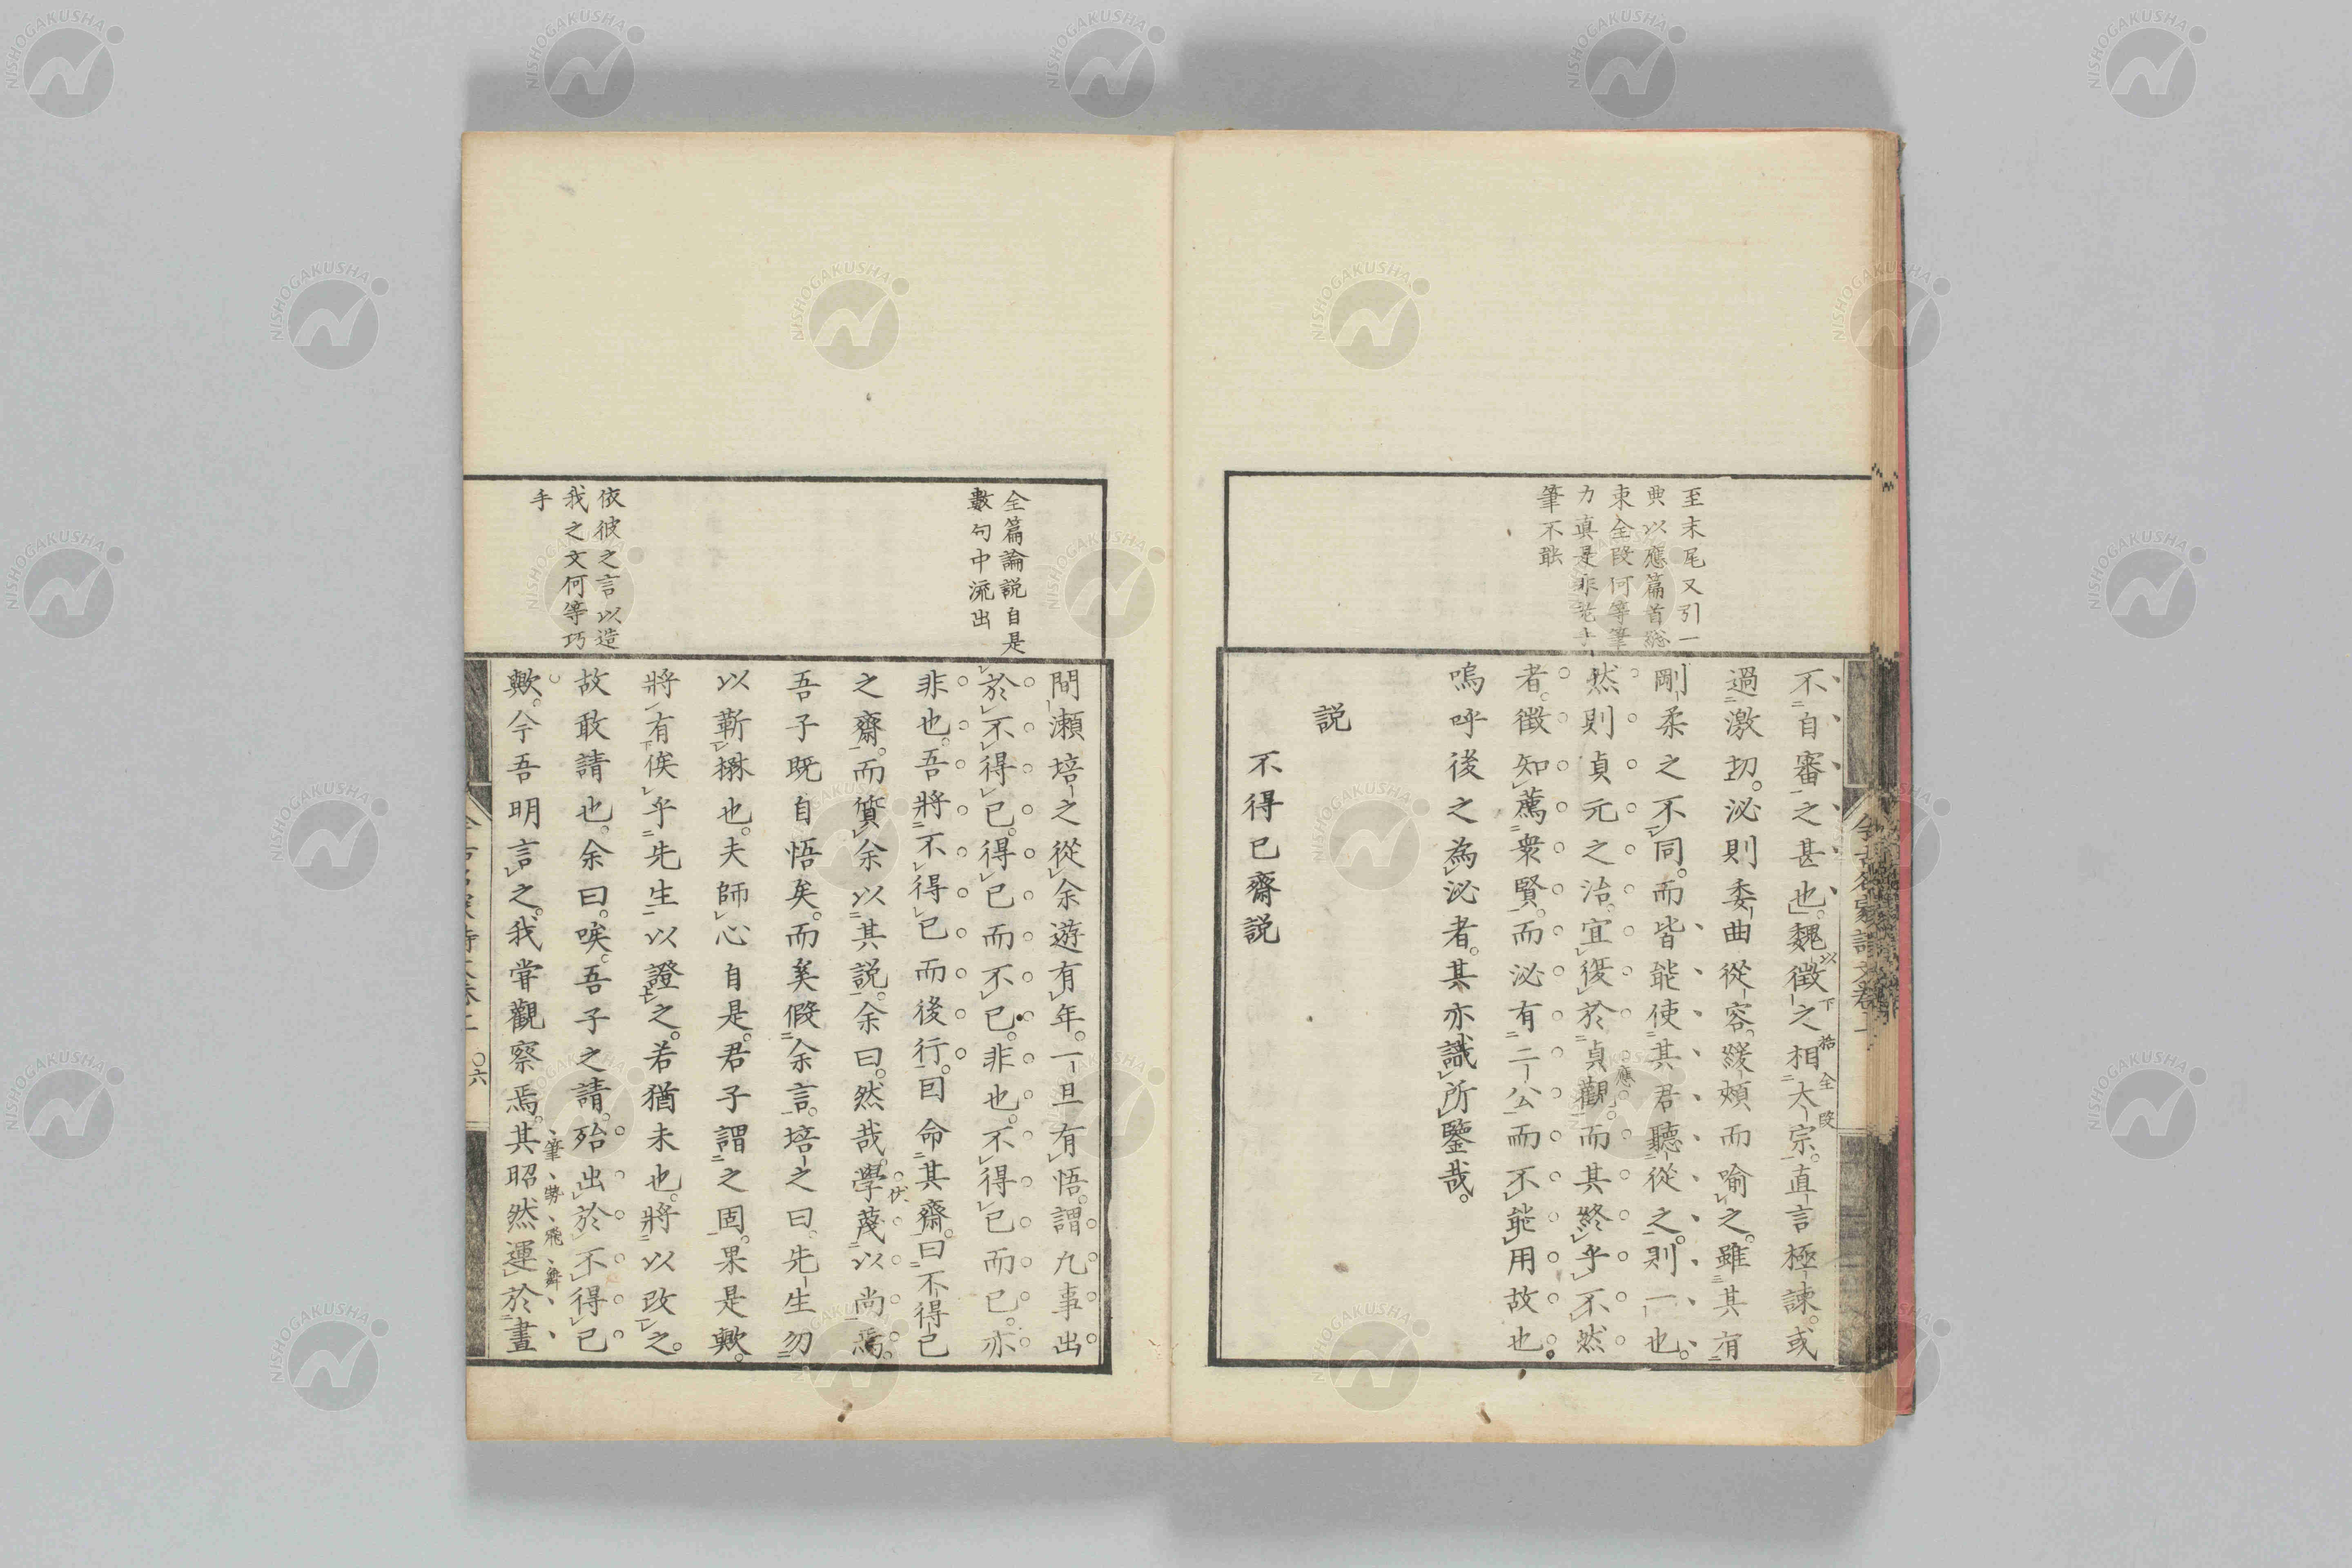 至末尾又引一
典以應篇首総
束全段何等筆
力真是
筆不敢
不自審之甚也。魏徴之相太宗。直言極諫。或
以下 拾全段
過激切。泌則委曲從容。緩頰而喩之。雖其有
剛柔之不同。而皆能使其君聽從之。則一也。
然則貞元之治。宜復於貞觀。而其終乎不然
應
者。徴知薦衆賢。而泌有二公而不能用故也。
嗚呼後之為泌者。其亦識所鑒哉。
説
不得已齋説
全篇論説自是
數句中流出
依彼之言以造
我之文何等巧
手
間瀬培之從余遊有年。一旦有悟。謂凡事出
於不得已。得已而不已。非也。不得已而已。亦
非也。吾將不得已而後行。因命其齋。曰不得已
之齋。而質余以其説。余曰。然哉。學蔑以尚焉。
伏
吾子既自悟矣。而奚假余言。培之曰。先生勿
以蘄楙也。夫師心自是。君子謂之固。果是歟。
將有俟乎先生以證之。若猶未也。將以改之。
故敢請也。余曰。唉。吾子之請。殆出於不得已
歟。今吾明言之。我甞觀察焉。其昭然運於晝
筆勢飛舞
〇六